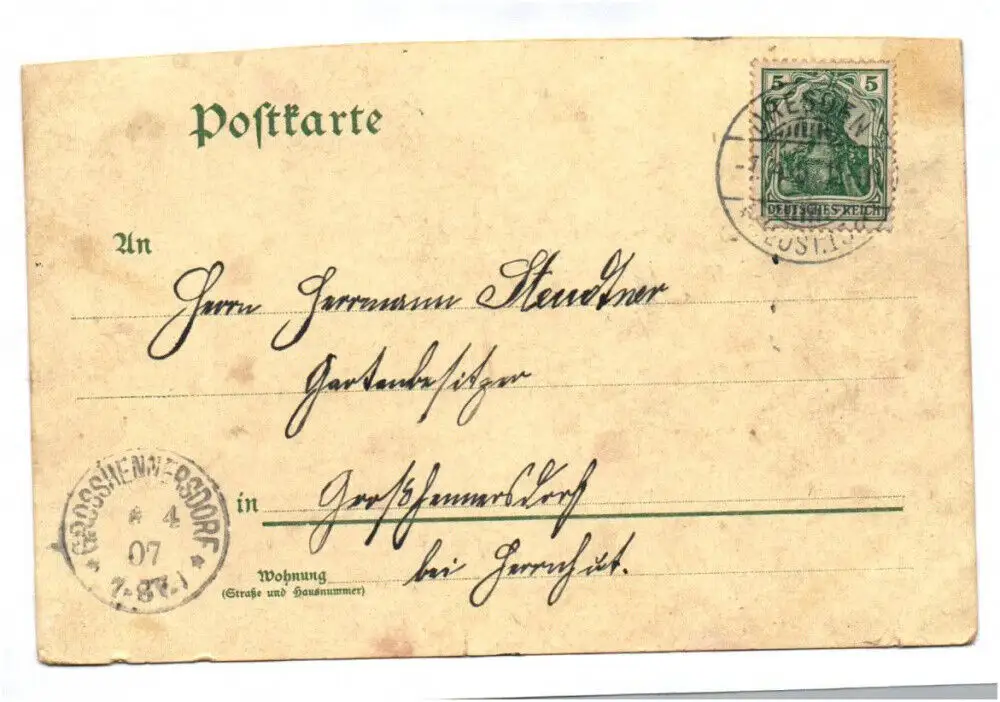 Postkarte
5 5
DRESDEN
DEUTSCHES REICH
An
Herrn Herrmann Steudtner
Gartenbesitzer
in Großhennersdorf
bei Herrnhut.
Wohnung
(Straße und Hausnummer)
GROSSHENNERSDORF
4
07
7-8V.